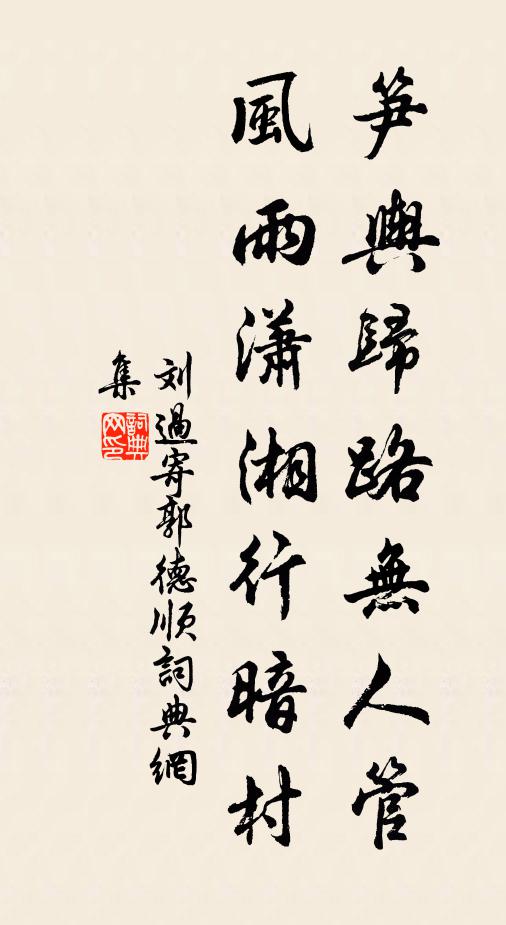 笋輿歸路無人管
風雨瀟湘行暗村
刘過寄郭德順詞典網
集
詞典网印